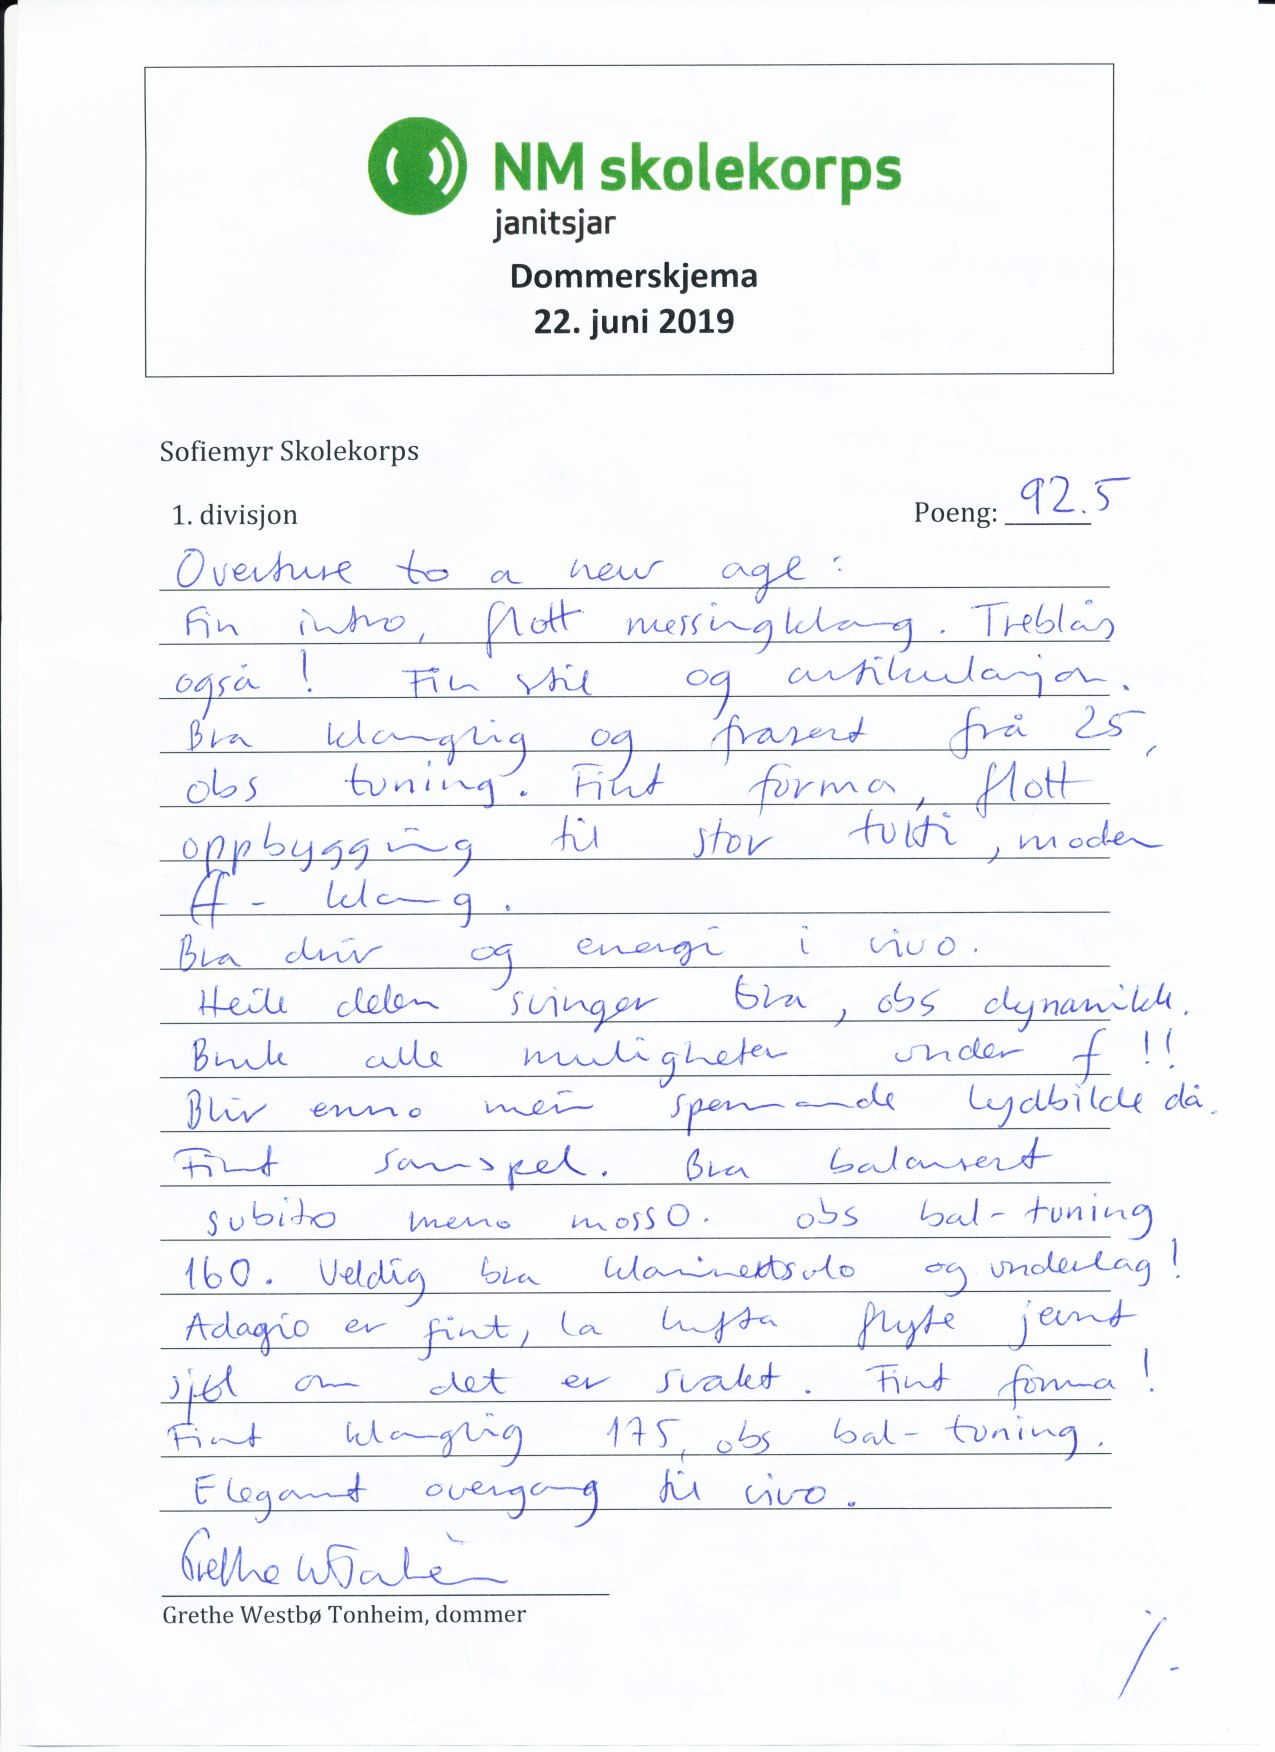 NM skolekorps
janitsjar
Dommerskjema
22. juni 2019
Sofiemyr Skolekorps
1. divisjon Poeng: 92.5
Overture to a new age:
Fin intro, flott messingklang. Treblås
også! Fin stil og artikulasjon.
Bra klanglig og frasert frå 25,
obs tuning. Fint forma, flott
oppbygging til stor tutti, moden
ff - klang.
Bra driv og energi i vivo.
Heile delen svinger bra, obs dynamikk.
Bruk alle muligheter under f!!
Blir enno meir spennande lydbilde då.
Fint samspel. Bra balansert
subito meno mosso. obs bal-tuning
160. Veldig bra klarinettsolo og underlag!
Adagio er fint, la lufta flyte jamt
sjøl om det er svakt. Fint forma!
Fint klanglig 175, obs bal-tuning.
Elegant overgang til vivo.
Grethe Westbø Tonheim, dommer